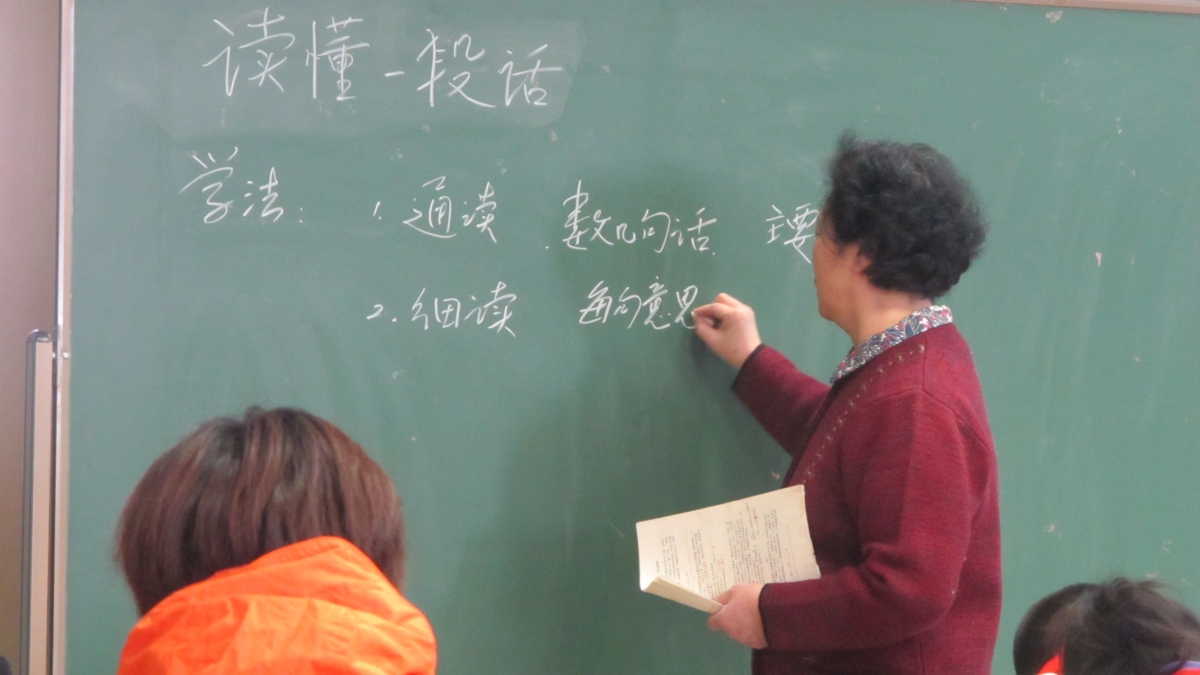 读懂一段话
学法： 1. 通读 数几句话 主要
2. 细读 每句意思